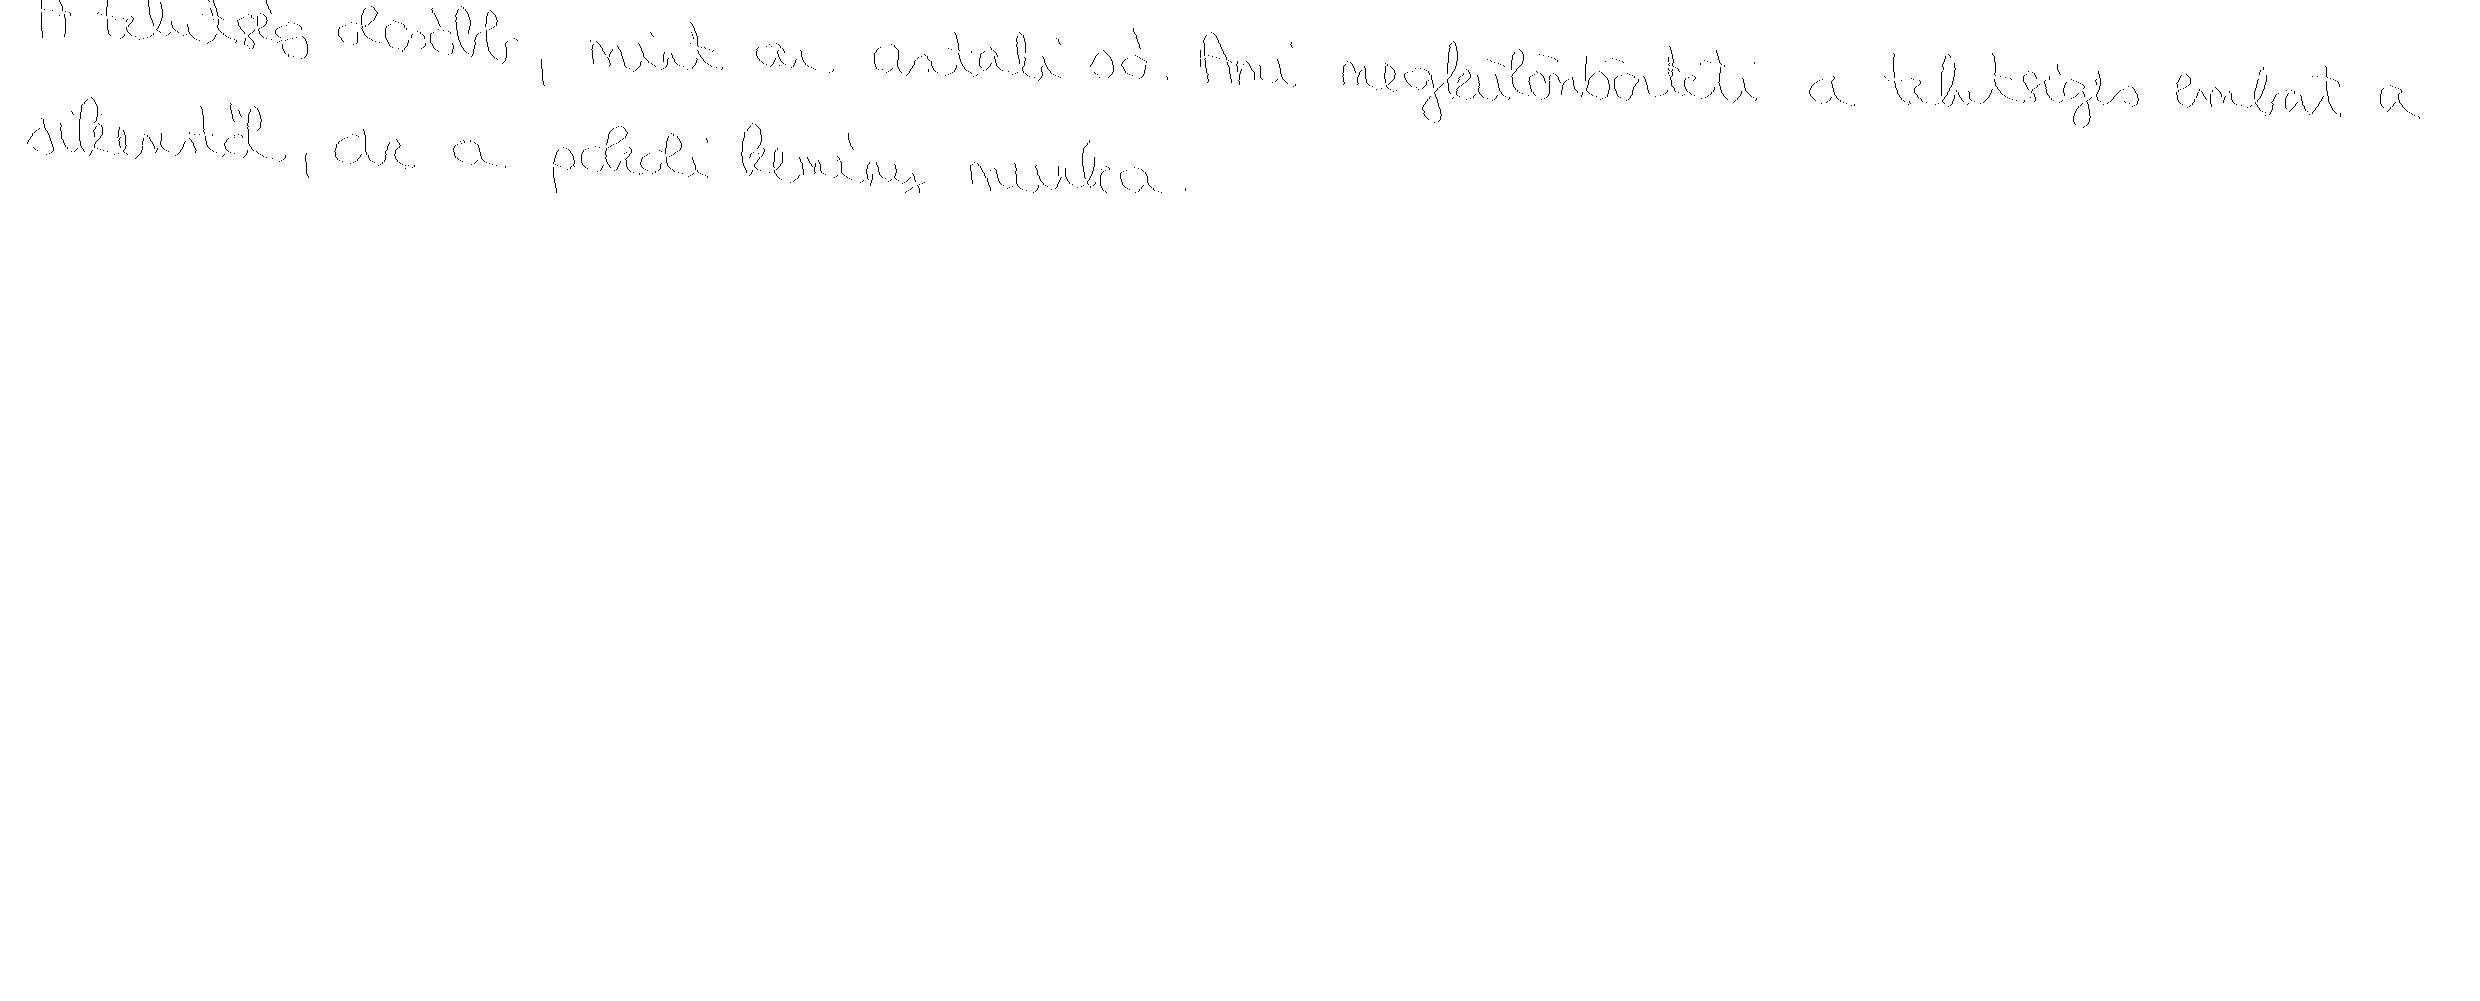 A tehetség olcsóbb, mint az asztali só. Ami megkülönbözteti a tehetséges embert a
sikerestől, az a pokoli kemény munka.